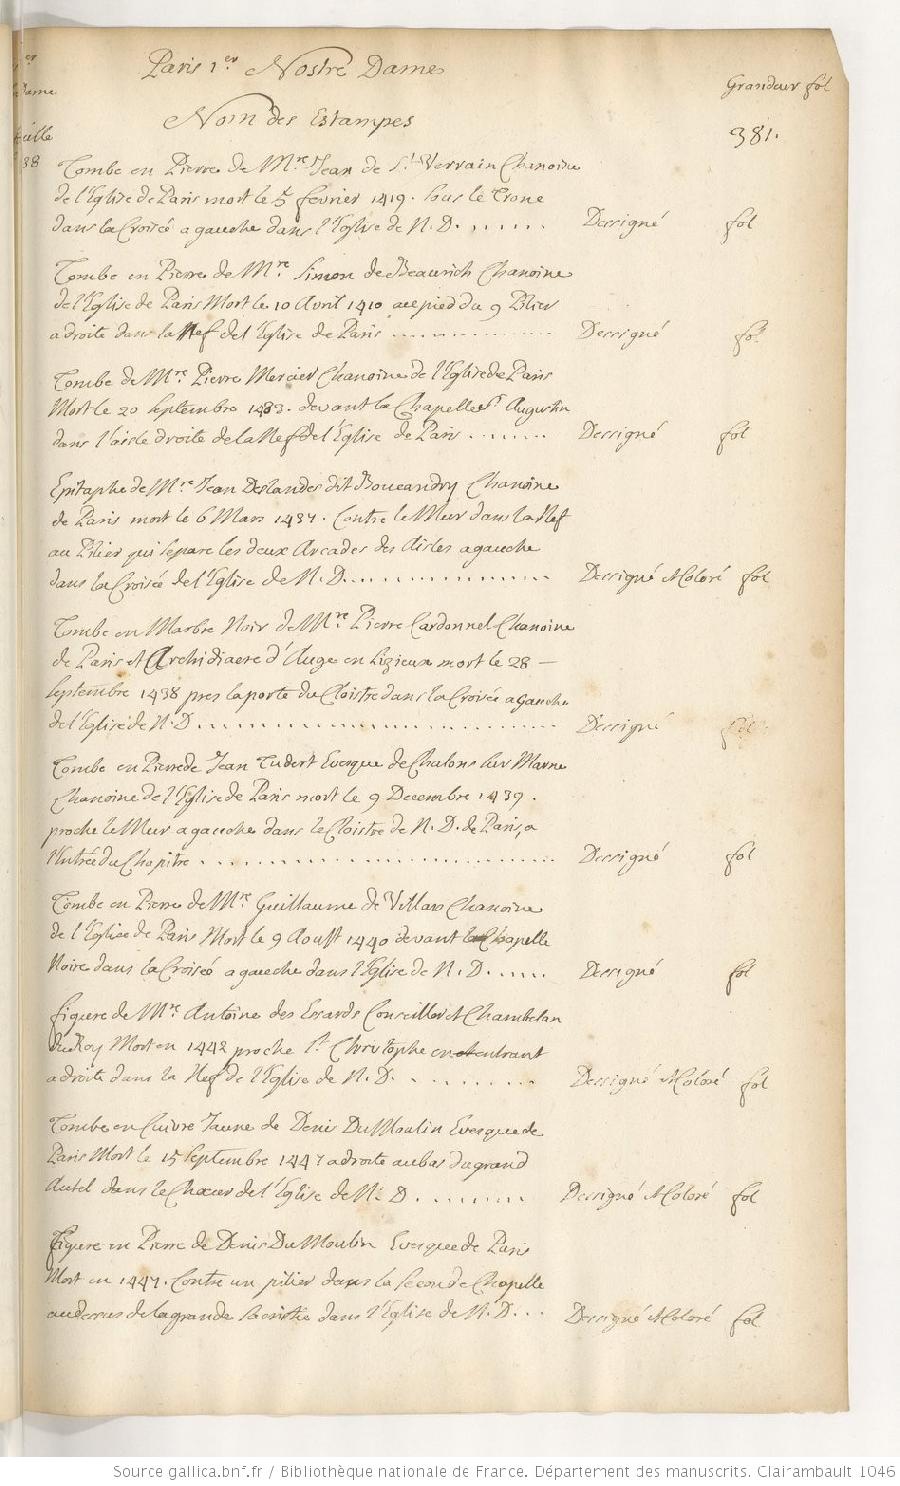 Paris 1er Nostre Dame
Grandeur fol
Nom des Estampes
381.
Tombe en Pierre de Mre Jean de St Verrain Chanoine
de l'Eglise de Paris mort le 5 fevrier 1419. sous le Trone
dans la Croisée a gauche dans l'Eglise de N. D. ...... Dessigné fol
Tombe en Pierre de Mre Simon de Beaurich Chanoine
de l'Eglise de Paris Mort le 10 Avril 1410 au pied du 9 Pilier
a droite dans la Nef de l'Eglise de Paris ............ Dessigné fol
Tombe de Mre Pierre Mercier Chanoine de l'Eglise de Paris
Mort le 20 Septembre 1483. devant la Chapelle St Augustin
dans l'aisle droite de la Nef de l'Eglise de Paris ....... Dessigné fol
Epitaphe de Mre Jean Deslandes dit Boucandry Chanoine
de Paris mort le 6 Mars 1437. Contre le Mur dans la Nef
au Pilier qui separe les deux Arcades des Aisles a gauche
dans la Croisée de l'Eglise de N. D. .................. Dessigné et Coloré fol
Tombe en Marbre Noir de Mre Pierre Cardonnel Chanoine
de Paris et Archidiacre d'Auge en Lizieux mort le 28 —
Septembre 1438 pres la porte du Cloistre dans la Croisée a Gauche
de l'Eglise de N. D. .............................. Dessigné fol
Tombe en Pierre de Jean Tudert Evesque de Chalons sur Marne
Chanoine de l'Eglise de Paris mort le 9 Decembre 1439.
proche le Mur a gauche dans le Cloistre de N. D. de Paris, a
l'Entrée du Chapitre .............................. Dessigné fol
Tombe en Pierre de Mre Guillaume de Villars Chanoine
de l'Eglise de Paris Mort le 9 Aoust 1440 devant la Chapelle
Noire dans la Croisée a gauche dans l'Eglise de N. D. ..... Dessigné fol
figure de Mre Antoine des Essards Conseiller et Chambelan
du Roy Mort en 1442 proche St Christophe en entrant
a droite dans la Nef de l'Eglise de N. D. ......... Dessigné et Coloré fol
Tombe en Cuivre Jaune de Denis Du Moulin Evesque de
Paris Mort le 15 Septembre 1447 a droite au bas du grand
Autel dans le Choeur de l'Eglise de N. D. ........ Dessigné et Coloré fol
Figure en Pierre de Denis Du Moulin Evesque de Paris
Mort en 1447. Contre un pilier dans la Seconde Chapelle
au dessus de la grande Sacristie dans l'Eglise de N. D. ... Dessigné et Coloré fol
Source gallica.bnf.fr / Bibliothèque nationale de France. Département des manuscrits. Clairambault 1046